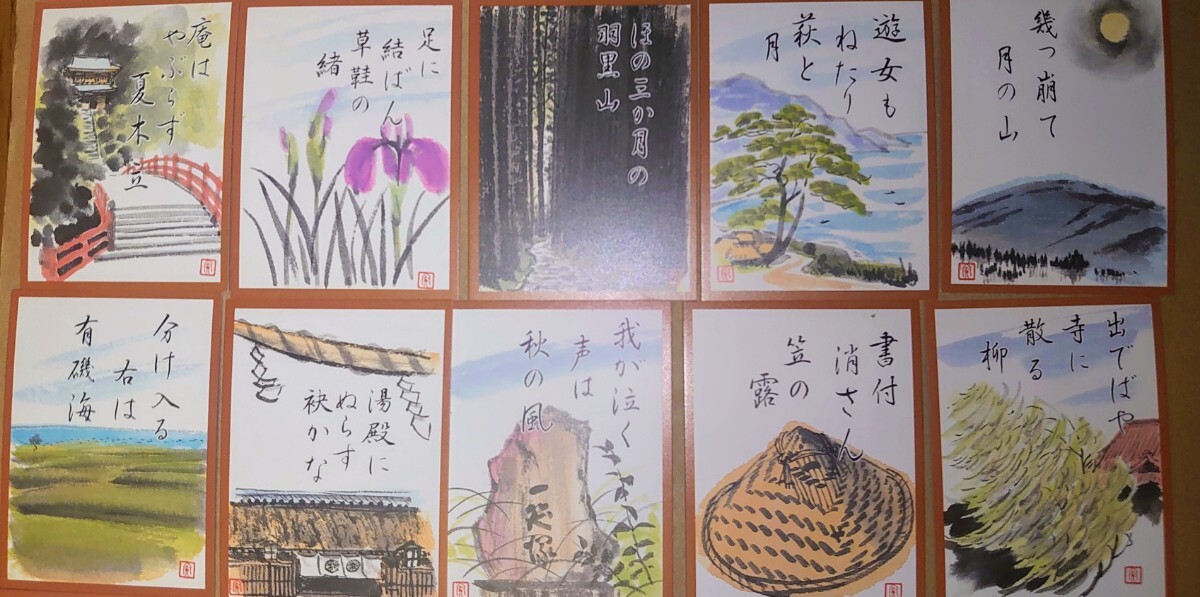 庵は
やぶらず
夏木立
足に
結ばん
草鞋の
緒
ほの三か月の
羽黒山
遊女も
ねたり
萩と
月
幾つ崩て
月の山
分け入る
右は
有磯海
湯殿に
ぬらす
袂かな
我が泣く
声は
秋の風
書付
消さん
笠の
露
出でばや
寺に
散る
柳